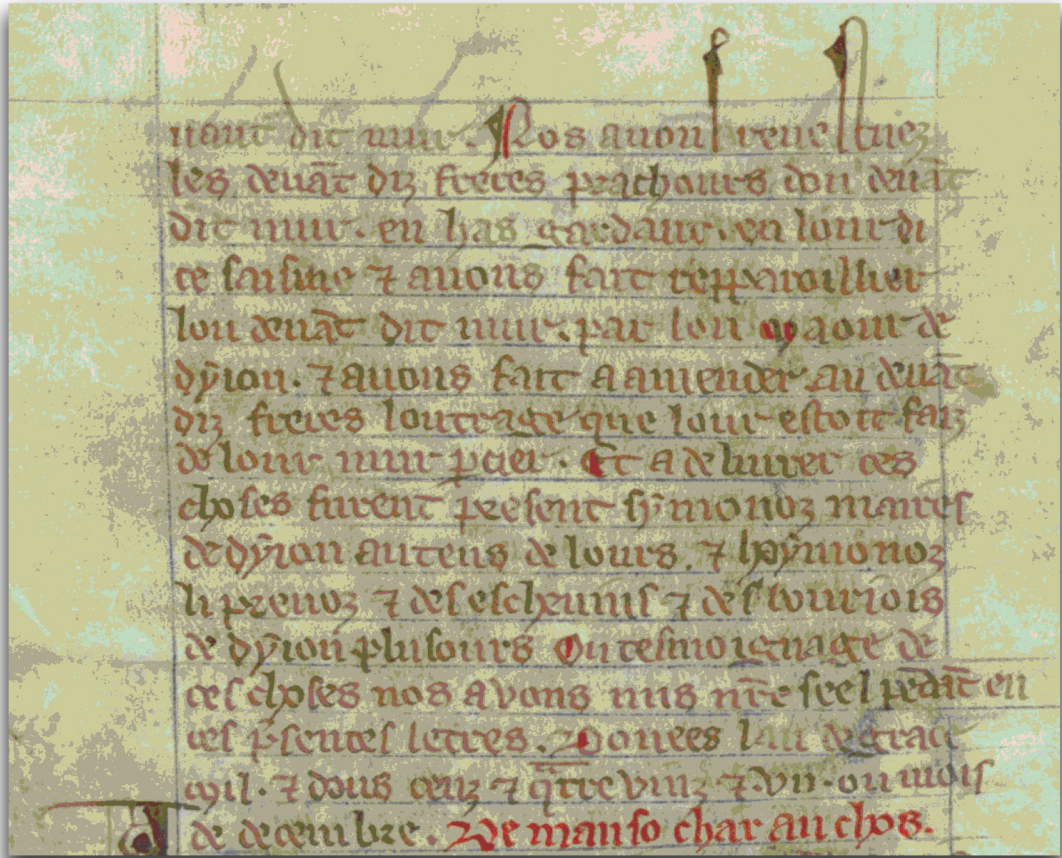 uant dit mur. Nos auons reuestuez
les deuāt diz freres prachours don deuāt
dit mur. en has gardant. en lour di
te saisine ⁊ auons fait repparoillier
lou deuāt dit mur. par lou maour de
dyion. ⁊ auons fait a amender. au deuāt
diz freres loutrage que lour estoit faiz
de lour mur Et a deliurer ces
choses furent present symonoz maires
de dyion autens de lours. ⁊ hymonoz
li preuoz ⁊ des escheuins ⁊ des bouriois
de dyion plusours Ou tesmoignage de
ces choses nos auons mis nr̄e seel pēdāt en
ces p̄sentes letres. Donees lan de grace
mil. ⁊ dous cenz ⁊ q̄tre vinz ⁊ vn. ou mois
de decembre. De manso char au chos.